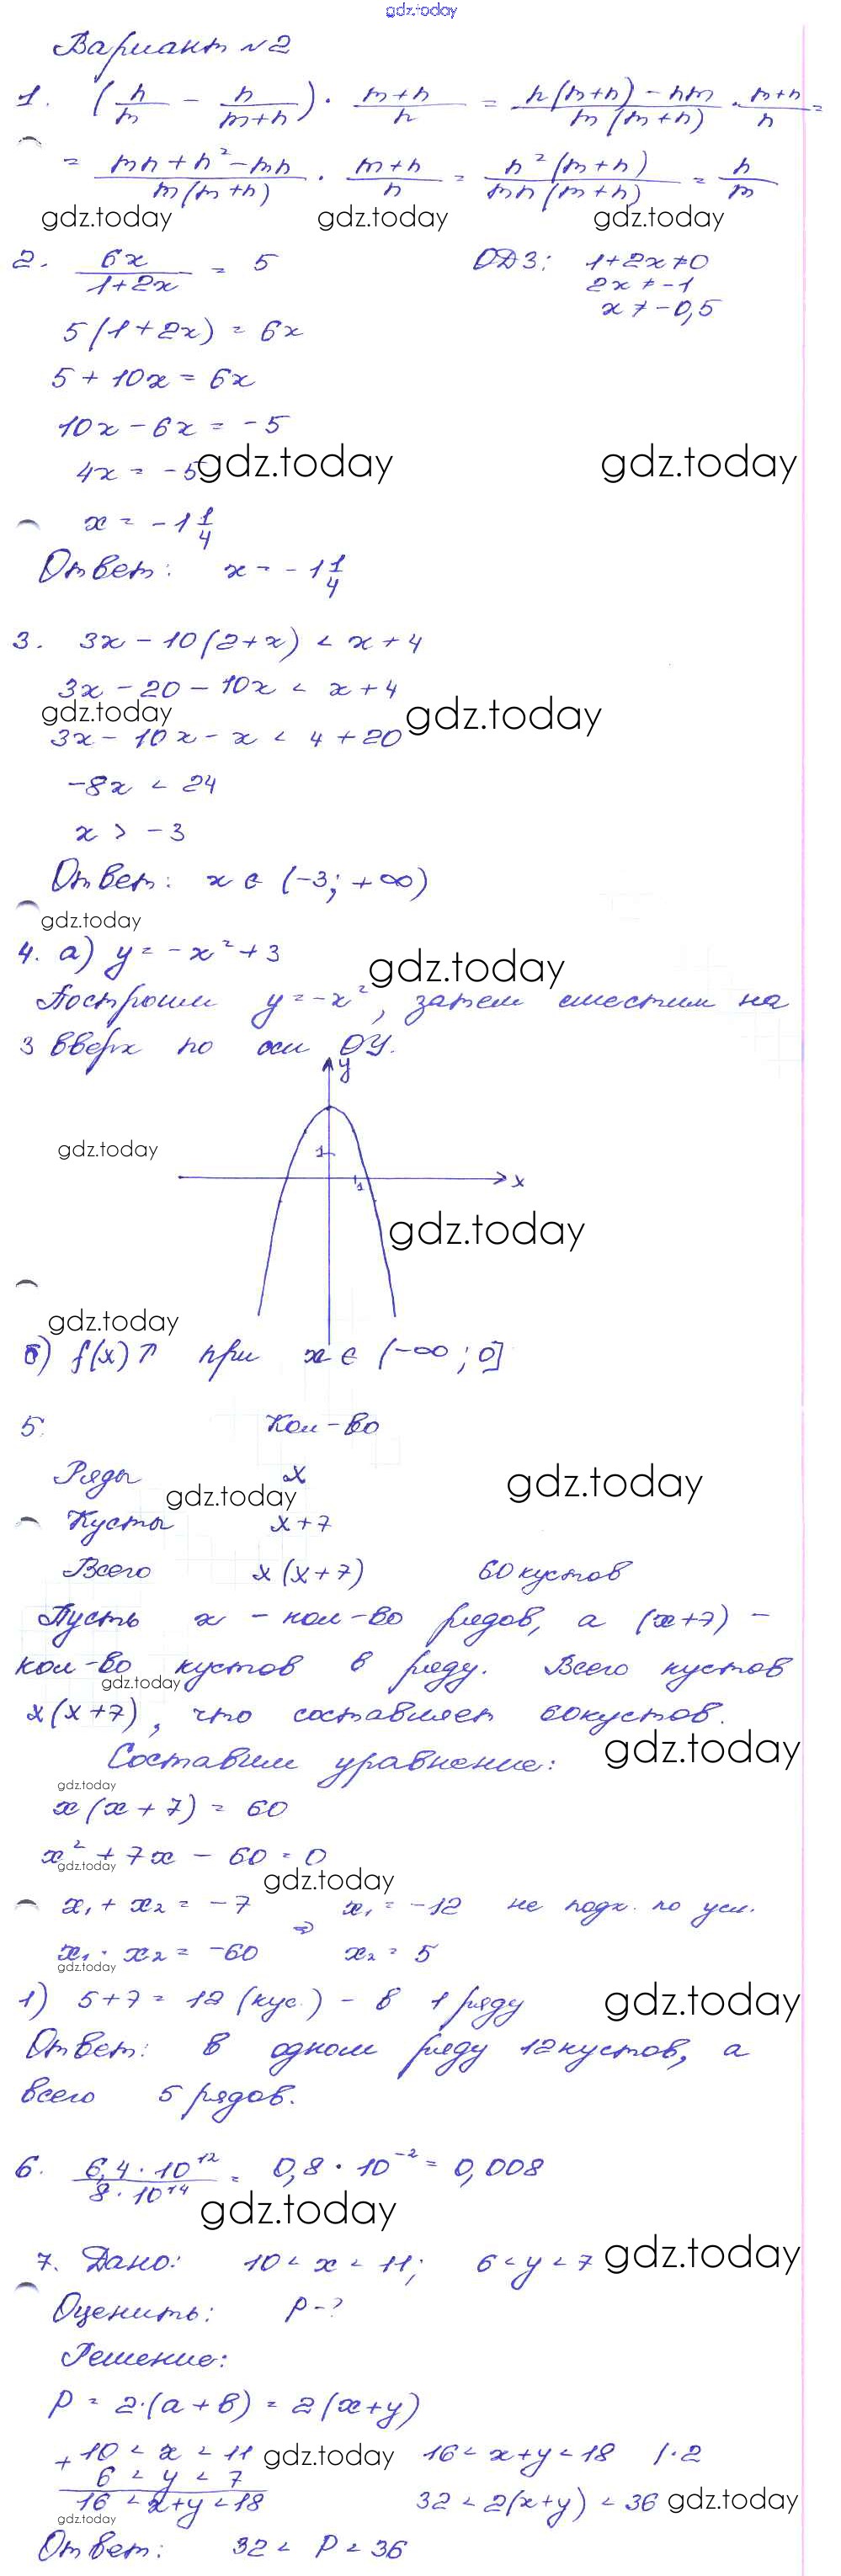 gdz.today
Вариант №2
1. (n/m - n/(m+n)) · (m+n)/n = (n(m+n) - nm)/(m(m+n)) · (m+n)/n =
= (mn + n² - mn)/(m(m+n)) · (m+n)/n = n²(m+n)/(mn(m+n)) = n/m
gdz.today gdz.today gdz.today
2. 6x/(1+2x) = 5 ОДЗ: 1+2x≠0
2x ≠ -1
x ≠ -0,5
5(1+2x) = 6x
5 + 10x = 6x
10x - 6x = -5
4x = -5 gdz.today gdz.today
x = -1 1/4
Ответ: x = -1 1/4
3. 3x - 10(2+x) < x + 4
3x - 20 - 10x < x + 4
gdz.today gdz.today
3x - 10x - x < 4 + 20
-8x < 24
x > -3
Ответ: x ∈ (-3; +∞)
gdz.today
4. а) y = -x² + 3 gdz.today
Построим y = -x², затем сместим на
3 вверх по оси ОУ.
y
gdz.today 1
1 x
gdz.today
gdz.today
б) f(x)↑ при x ∈ (-∞; 0]
5. Кол-во
Ряды x gdz.today
gdz.today
Кусты x+7
Всего x(x+7) 60 кустов
Пусть x - кол-во рядов, а (x+7) -
кол-во кустов в ряду. Всего кустов
gdz.today
x(x+7), что составляет 60 кустов.
Составим уравнение: gdz.today
gdz.today
x(x+7) = 60
x² + 7x - 60 = 0
gdz.today gdz.today
x₁ + x₂ = -7 ⇒ x₁ = -12 не подх. по усл.
x₁ · x₂ = -60 x₂ = 5
gdz.today
1) 5+7 = 12 (кус.) - в 1 ряду gdz.today
Ответ: в одном ряду 12 кустов, а
всего 5 рядов.
6. (6,4 · 10¹²)/(8 · 10¹⁴) = 0,8 · 10⁻² = 0,008
gdz.today
7. Дано: 10 < x < 11; 6 < y < 7 gdz.today
Оценить: P - ?
Решение:
P = 2·(a+b) = 2(x+y)
+ 10 < x < 11 gdz.today 16 < x+y < 18 | · 2
6 < y < 7
16 < x+y < 18 32 < 2(x+y) < 36 gdz.today
gdz.today
Ответ: 32 < P < 36